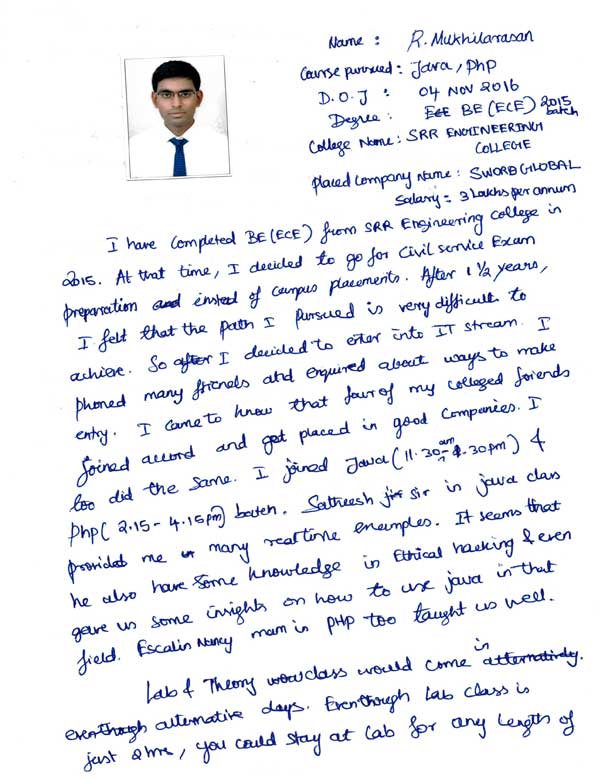 Name : R. Mukhilarasan
Course pursued : Java, Php
D.O.J : 04 NOV 2016
Degree : ECE BE (ECE) 2015 batch
College Name : SRR ENGINEERING
COLLEGE
Placed Company Name : SWORD GLOBAL
Salary : 3 Lakhs per annum
I have completed BE (ECE) from SRR Engineering college in
2015. At that time, I decided to go for Civil service Exam
preparation and instead of campus placements. After 1 1/2 years,
I felt that the path I pursued is very difficult to
achieve. So after I decided to enter into IT stream. I
phoned many friends and enquired about ways to make
entry. I came to know that four of my colleged friends
joined accord and got placed in good companies. I
too did the same. I joined Java (11.30am - 1.30pm) &
Php (2.15 - 4.15pm) batch. Satheesh sir in java class
provided me many realtime examples. It seems that
he also have some knowledge in Ethical hacking & even
gave us some insights on how to use java in that
field. Escalin Nancy mam in PHP too taught us well.
Lab & Theory class would come in alternatively.
eventhough alternative days. Eventhough Lab class is
just 2 hrs, you could stay at lab for any length of